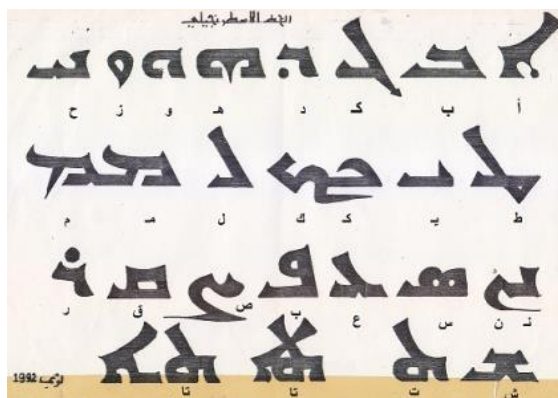 الخط الأسطرنجيلي
ܐ ܒ ܓ ܕ ܗ ܘ ܙ ܚ
أ ب كـ د هـ و ز ح
ܛ ܝ ܟܟ ܠ ܡܡ
ط يـ كـ ك ل مـ م
ܢܢ ܣ ܥ ܦ ܨ ܩ ܪ
نـ ن س ع ب ص ق ر
ܫ ܬ ܬܐ ܬܐ
ش ت تا تا
1992